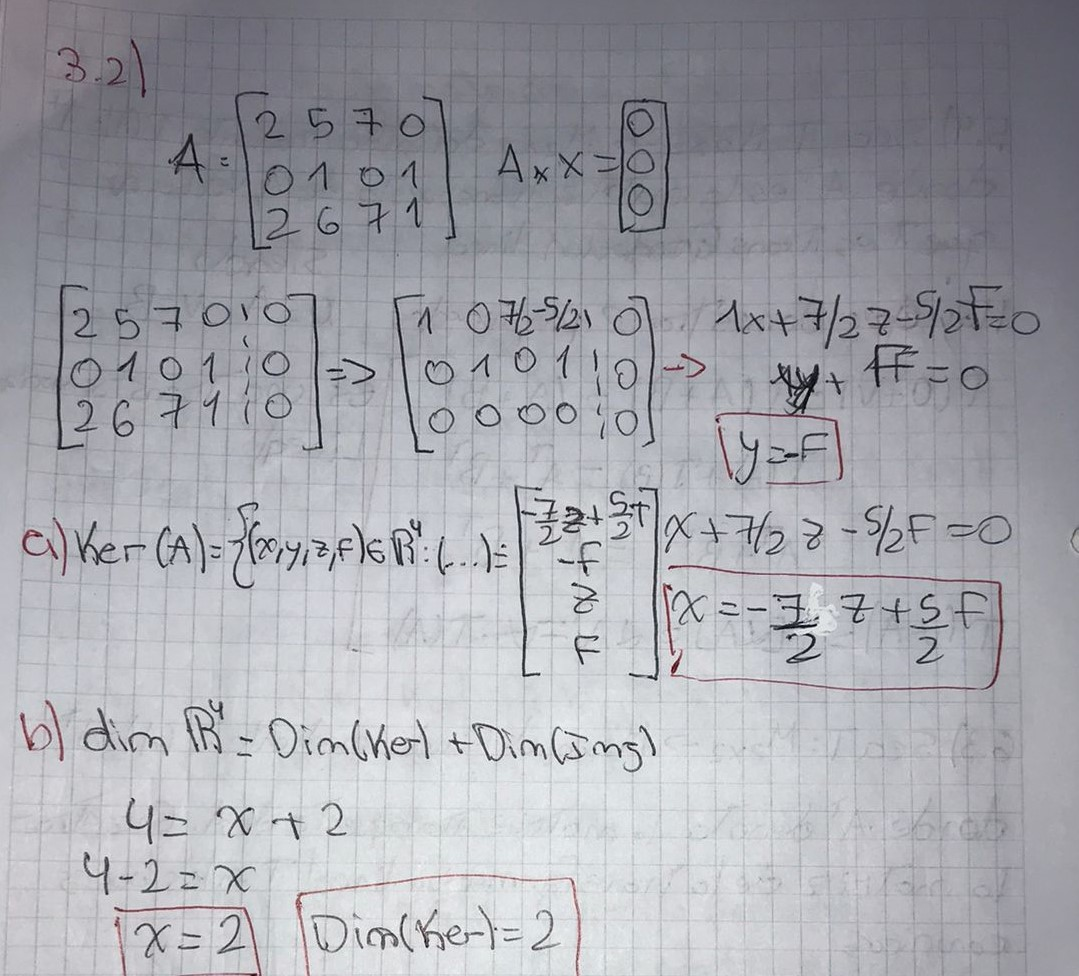 3.2)
A = [2 5 7 0
0 1 0 1
2 6 7 1] A x X = [0
0
0]
[2 5 7 0 ¦ 0
0 1 0 1 ¦ 0
2 6 7 1 ¦ 0] => [1 0 7/2 -5/2 ¦ 0
0 1 0 1 ¦ 0
0 0 0 0 ¦ 0] -> 1x + 7/2 z - 5/2 F = 0
y + F = 0
y = -F
a) Ker (A) = {(x,y,z,F) ∈ R⁴: (...) = [-7/2 z + 5/2 F
-F
z
F]
x + 7/2 z - 5/2 F = 0
x = -7/2 z + 5/2 F
b) dim R⁴ = Dim(Ker) + Dim(Img)
4 = x + 2
4 - 2 = x
x = 2 Dim(Ker) = 2